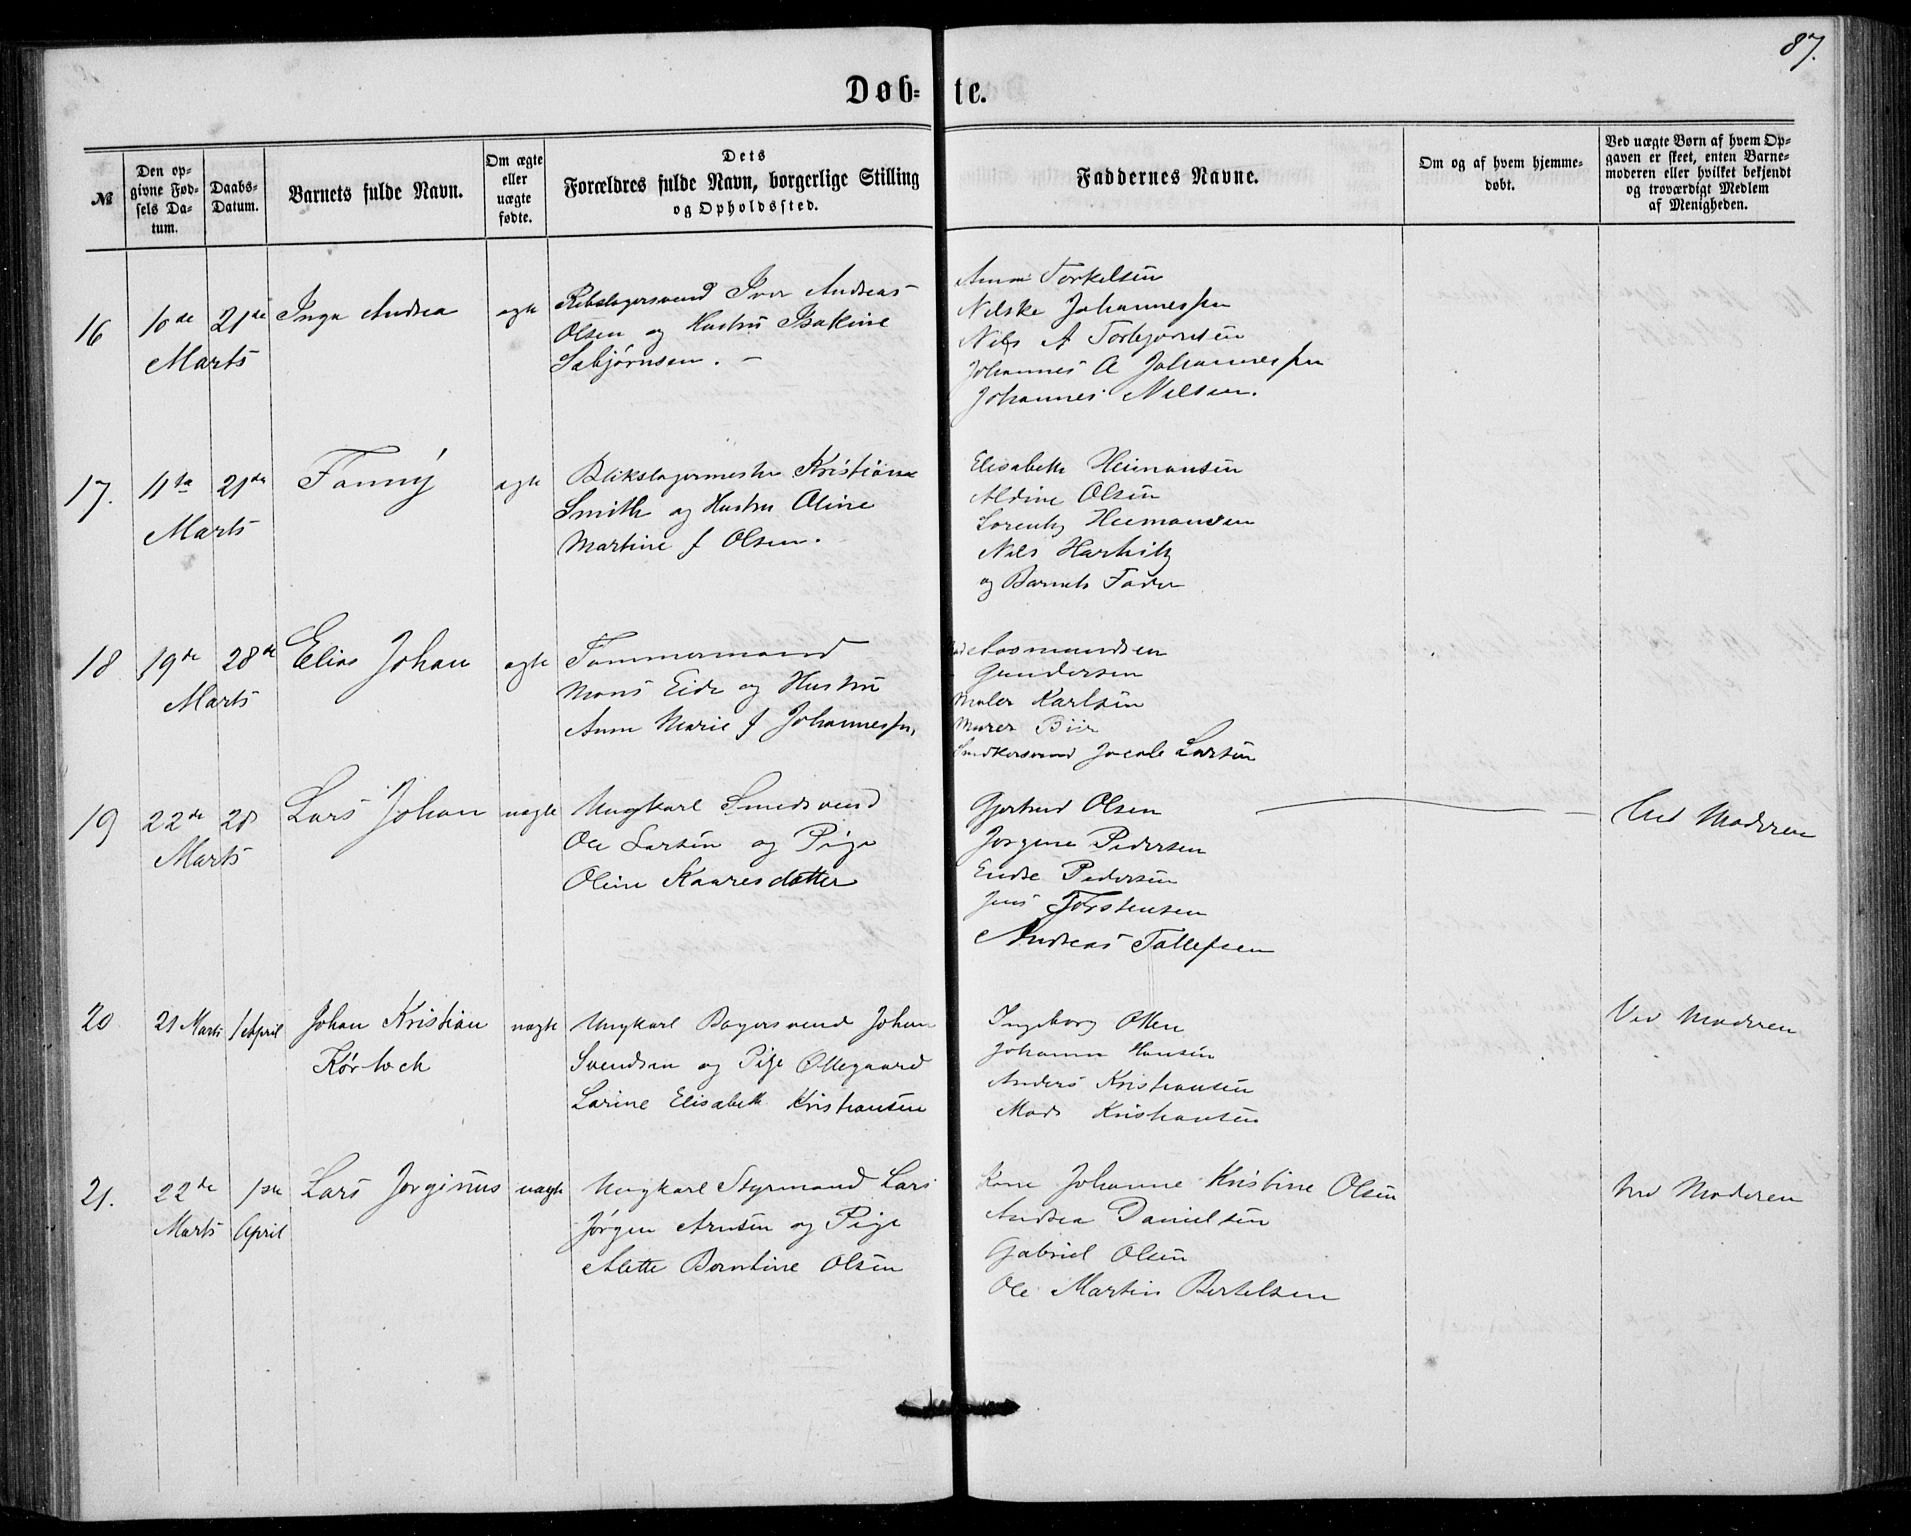 87.
Døb= te.
№
Den op-
givne Fød-
sels Da-
tum.
Daabs-
Datum.
Barnets fulde Navn.
Om ægte
eller
uægte
fødte.
Dets
Forældres fulde Navn, borgerlige Stilling
og Opholdssted.
Faddernes Navne.
Om og af hvem hjemme-
døbt.
Ved uægte Børn af hvem Op-
gaven er skeet, enten Barne-
moderen eller hvilket bekjendt
og troværdigt Medlem
af Menigheden.
16
10de
Marts
21de
Inga Andrea
ægte
Rebslagersvend Iver Andreas
Olsen og Hustru Bakine
Sæbjørnsen. -
Anna Torkelsen
Nilske Johannessen
Nils A Torbjørnsen
Johannes A Johannessen
Johannes Nilsen.
17.
11te
Marts
21de
Fanny
ægte
Blikslagermester Kristian
Smith og Hustru Oline
Martine f Olsen.
Elisabeth Heimansen
Aldine Olsen
Lorentz Heimansen
Nils Hartvik
og Barnets Fader
18
19de
Marts
28de
Elias Johan
ægte
Tømmermand
Mons Eide og Hustru
Anne Marie f Johannessen,
Aasmundsen
Gundersen
Maler Karlsen
Murer
Snedkersvend Jacob Larsen
19
22de
Marts
28
Lars Johan
uægte
Ungkarl Smedsvend
Ole Larsen og Pige
Oline Kaaresdatter
Gjertrud Olsen
Jørgine Pedersen
Endre Pedersen
Jens Torstensen
Andreas Tallefsen
Ved Moderen
20
21 Marts
1 April
Johan Kristian
Körbech
uægte
Ungkarl Bagersvend Johan
Svendsen og Pige Ollegaard
Larine Elisabeth Kristiansen
Ingeborg Olsen
Johanne Hansen
Anders Kristiansen
Mads Kristiansen
Ved Moderen
21.
22de
Marts
1ste
April
Lars Jørginus
uægte
Ungkarl Styrmand Lars
Jørgen Arnsen og Pige
Alette Berntine Olsen
Kone Johanne Kristine Olsen
Andrea Danielsen
Gabriel Olsen
Ole Martin Bertelsen
Ved Moderen